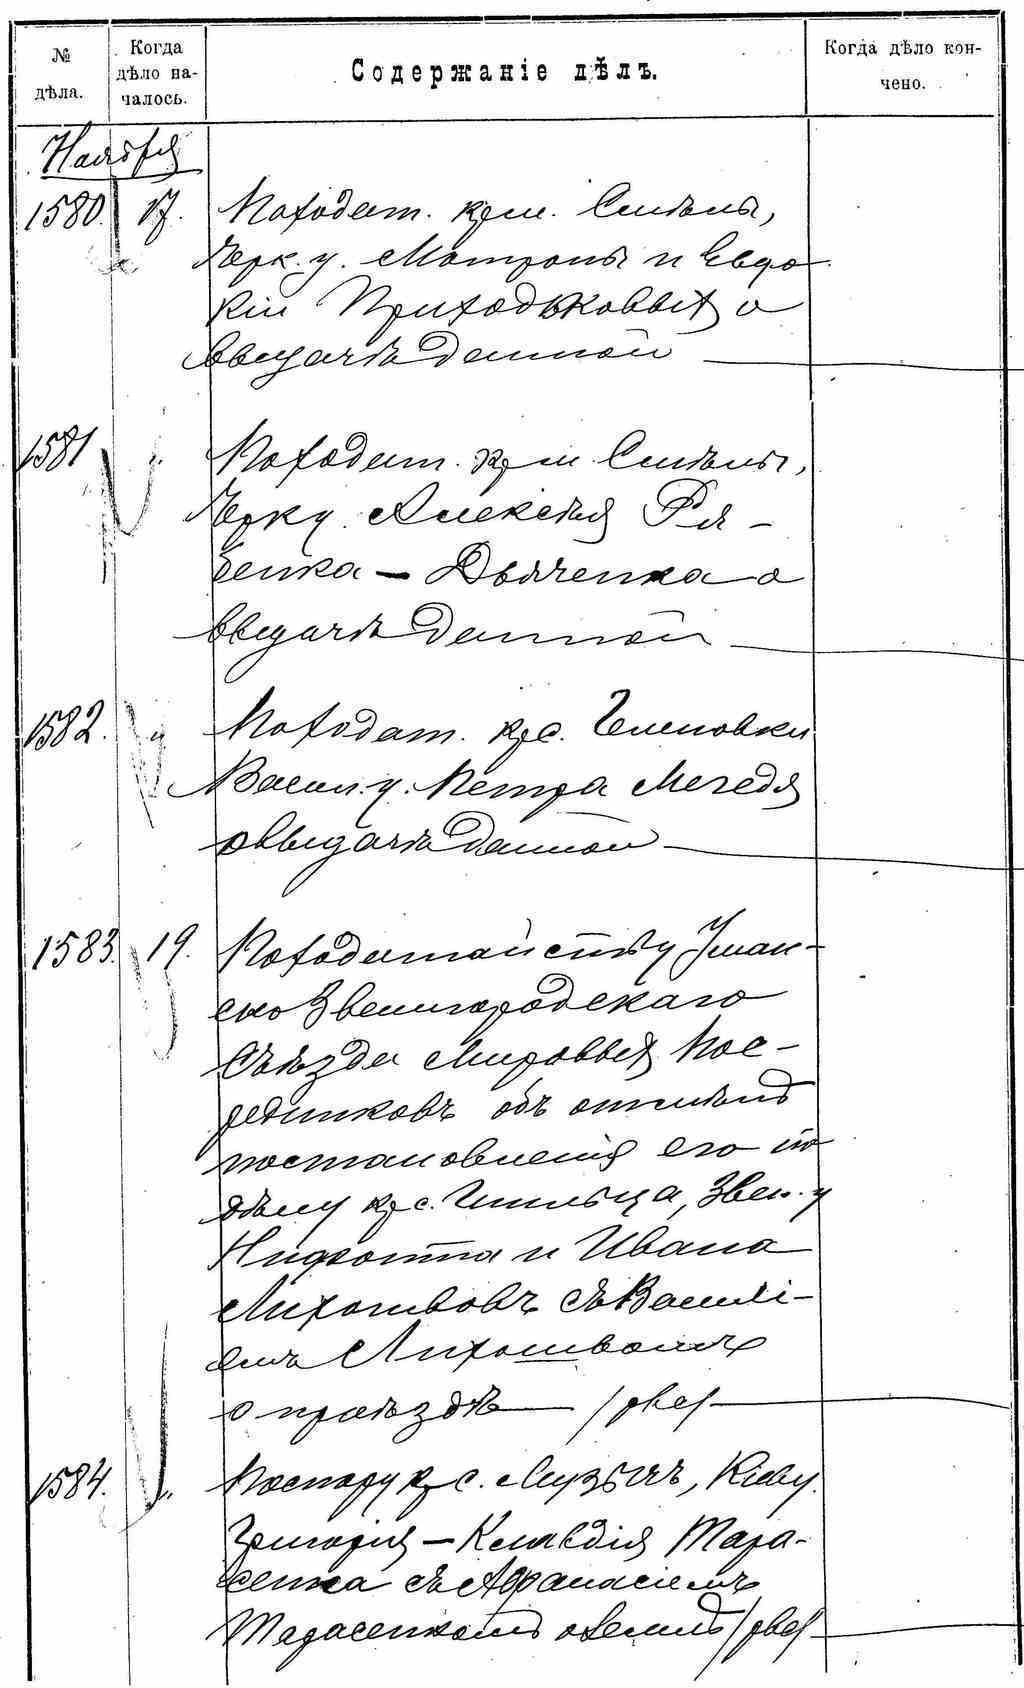 № дѣла.
Когда дѣло на-чалось.
Содержаніе дѣлъ.
Когда дѣло кон-чено.
Ноября
1580. 17. По ходат. кр. м. Смѣлы,
Черк. у. Матроны и Евдо-
кіи Приходьковыхъ о
выдачѣ данной
1581 " По ходат. кр. м. Смѣлы,
Черк. у. Алексѣя Ря-
бенка - Дьяченка о
выдачѣ данной
1582. " По ходат. кр. с.
Васил. у. Петра Мегедя
о выдачѣ данной
1583. 19. По ходатайству Уман-
ско Звенигородскаго
Съѣзда Мировыхъ Пос-
редниковъ объ отмѣнѣ
постановленія его по
дѣлу кр. с. Звен. у
и Ивана
Лихошвовъ съ Василі-
емъ Лихошвомъ
о проѣздѣ /рев/
1584. " По спору кр. с. Кіев. у.
Григорія - Клавдія Тара-
сенка съ Афанасіемъ
Тарасенкомъ о землѣ /рев/